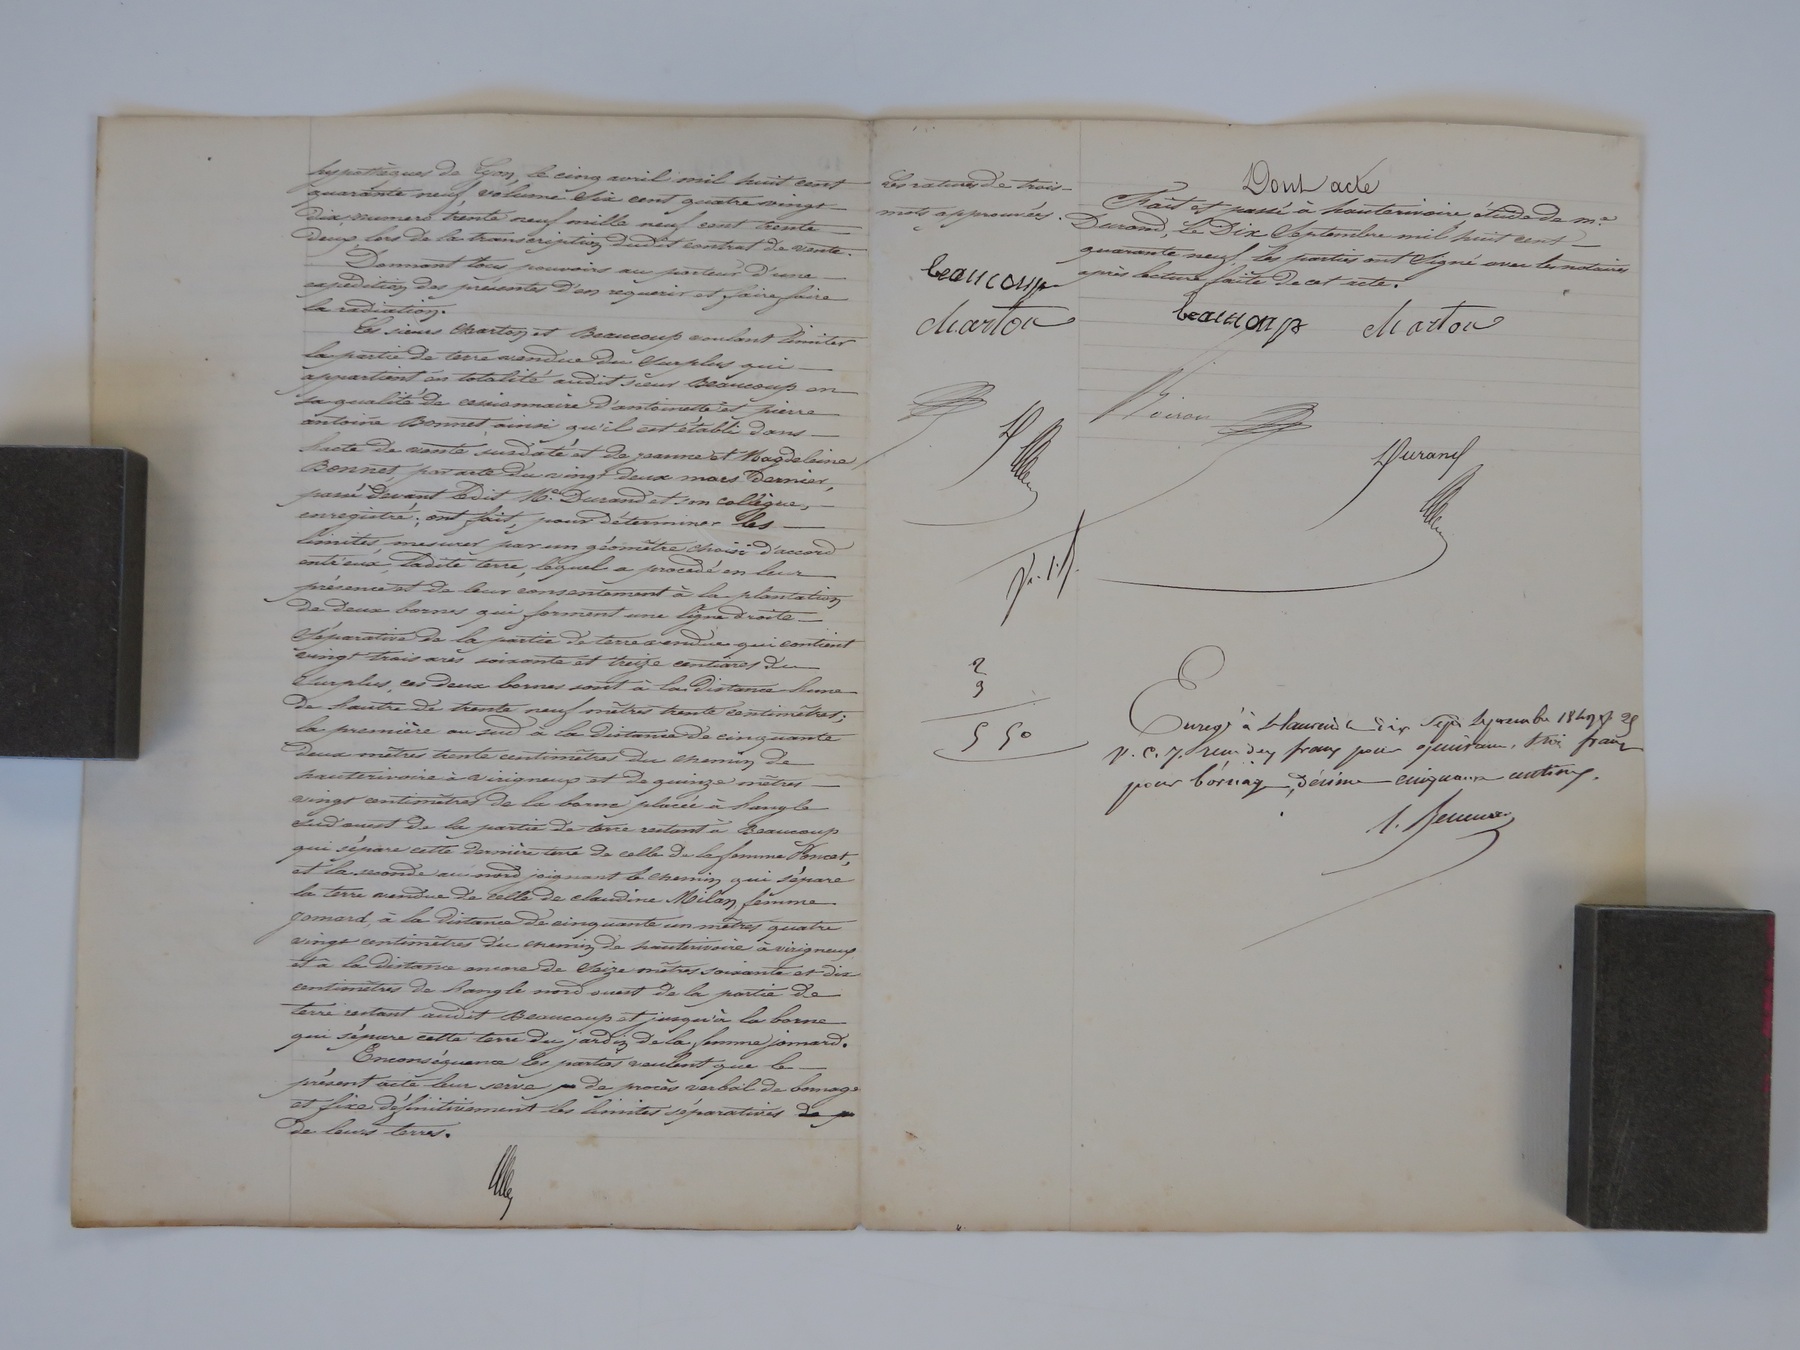 hypothèques de Lyon, le cinq avril mil huit cent
quarante neuf, volume six cent quatre vingt
dix numéro trente neuf mille neuf cent trente
deux, lors de la transcription dudit contrat de vente.
Donnant tous pouvoirs au porteur d'une
expédition des présentes d'en requérir et faire faire
la radiation.
Les sieurs Charton et Beaucoup voulant limiter
la partie de terre vendue du surplus qui
appartient en totalité audit sieur Beaucoup en
sa qualité de cessionnaire d'antoinette et pierre
antoine Bonnet ainsi qu'il est établi dans
l'acte de vente susdaté et de jeanne et Magdeleine
Bonnet, par acte du vingt deux mars dernier,
passé devant ledit Me Durand et son collègue,
enregistré; ont fait, pour déterminer les
limites, mesurer par un géomètre choisi d'accord
entr'eux, ladite terre, lequel a procédé en leur
présence et de leur consentement à la plantation
de deux bornes qui forment une ligne droite
séparative de la partie de terre vendue qui contient
vingt trois ares soixante et treize centiares du
surplus, ces deux bornes sont à la distance l'une
de l'autre de trente neuf mètres trente centimètres;
la première au sud à la distance de cinquante
deux mètres trente centimètres du chemin de
hauterivoire à virigneux et de quinze mètres
vingt centimètres de la borne placée à l'angle
sud'ouest de la partie de terre restant à Beaucoup
qui sépare cette dernière terre de celle de la femme Poncet,
et la seconde au nord joignant le chemin qui sépare
la terre vendue de celle de claudine Milan femme
jomard, à la distance de cinquante un mètres quatre
vingt centimètres du chemin de hauterivoire à virigneux
et à la distance encore de seize mètres soixante et dix
centimètres de l'angle nord ouest de la partie de
terre restant audit Beaucoup et jusqu'à la borne
qui sépare cette terre du jardin de la femme jomard.
En conséquence les parties veulent que le
présent acte leur serve de procès verbal de bornage
et fixe définitivement les limites séparatives de
de leurs terres.
Les ratures de trois
mots approuvées.
beaucoup
charton
D
2
3
5 50
Dont acte
Fait et passé à hauterivoire, étude de me
Durand, le Dix Septembre mil huit cent
quarante neuf, les parties ont signé avec les notaires
après lecture faite de cet acte.
beaucoup charton
Durand
Enregé à St laurent le dix sept septembre 1849
pour bornage, décime cinquante centimes.